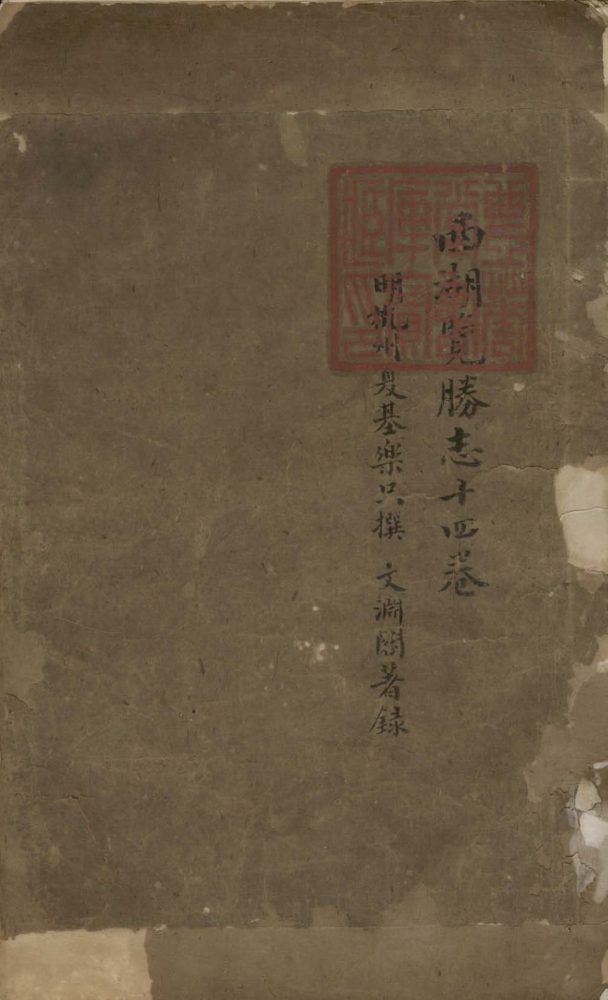 西湖覽勝志十四卷
明杭州夏基樂只撰 文淵閣著錄